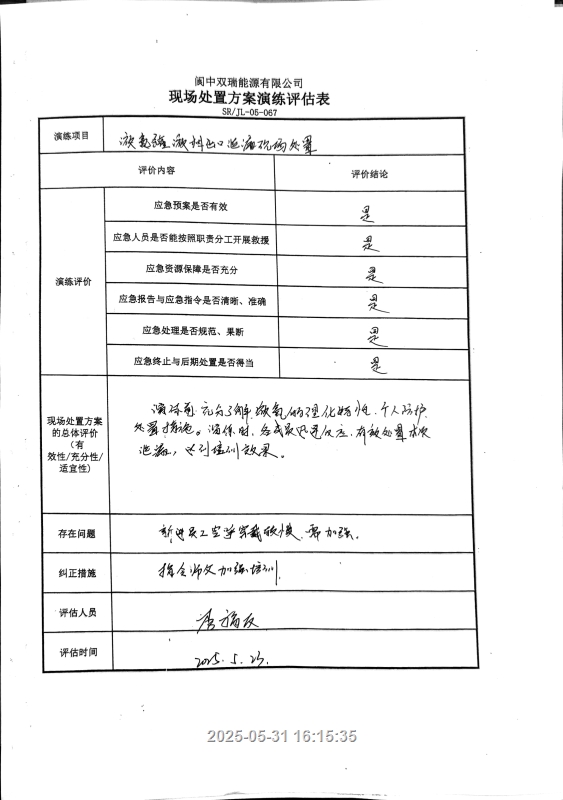 阆中双瑞能源有限公司
现场处置方案演练评估表
SR/JL-05-067
演练项目
液氨罐液相出口泄漏现场处置
评价内容
评价结论
演练评价
应急预案是否有效
是
应急人员是否能按照职责分工开展救援
是
应急资源保障是否充分
是
应急报告与应急指令是否清晰、准确
是
应急处理是否规范、果断
是
应急终止与后期处置是否得当
是
现场处置方案
的总体评价
（有
效性/充分性/
适宜性)
演练前充分了解液氨的理化特性、个人防护、
处置措施。演练时,各成员迅速反应,有效处置本次
泄漏,达到培训效果。
存在问题
新进员工空呼穿戴较慢,需加强。
纠正措施
指令师父加强培训
评估人员
评估时间
2025.5.23.
2025-05-31 16:15:35